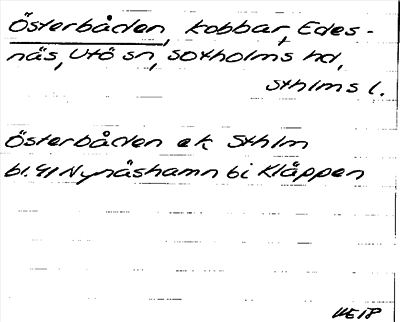 Österbåden, kobbar, Edes-
näs, Utö sn, Sotholms hd,
Sthlms l.
Österbåden ek Sthlm
bl. 41 Nynäshamn bi Klåppen